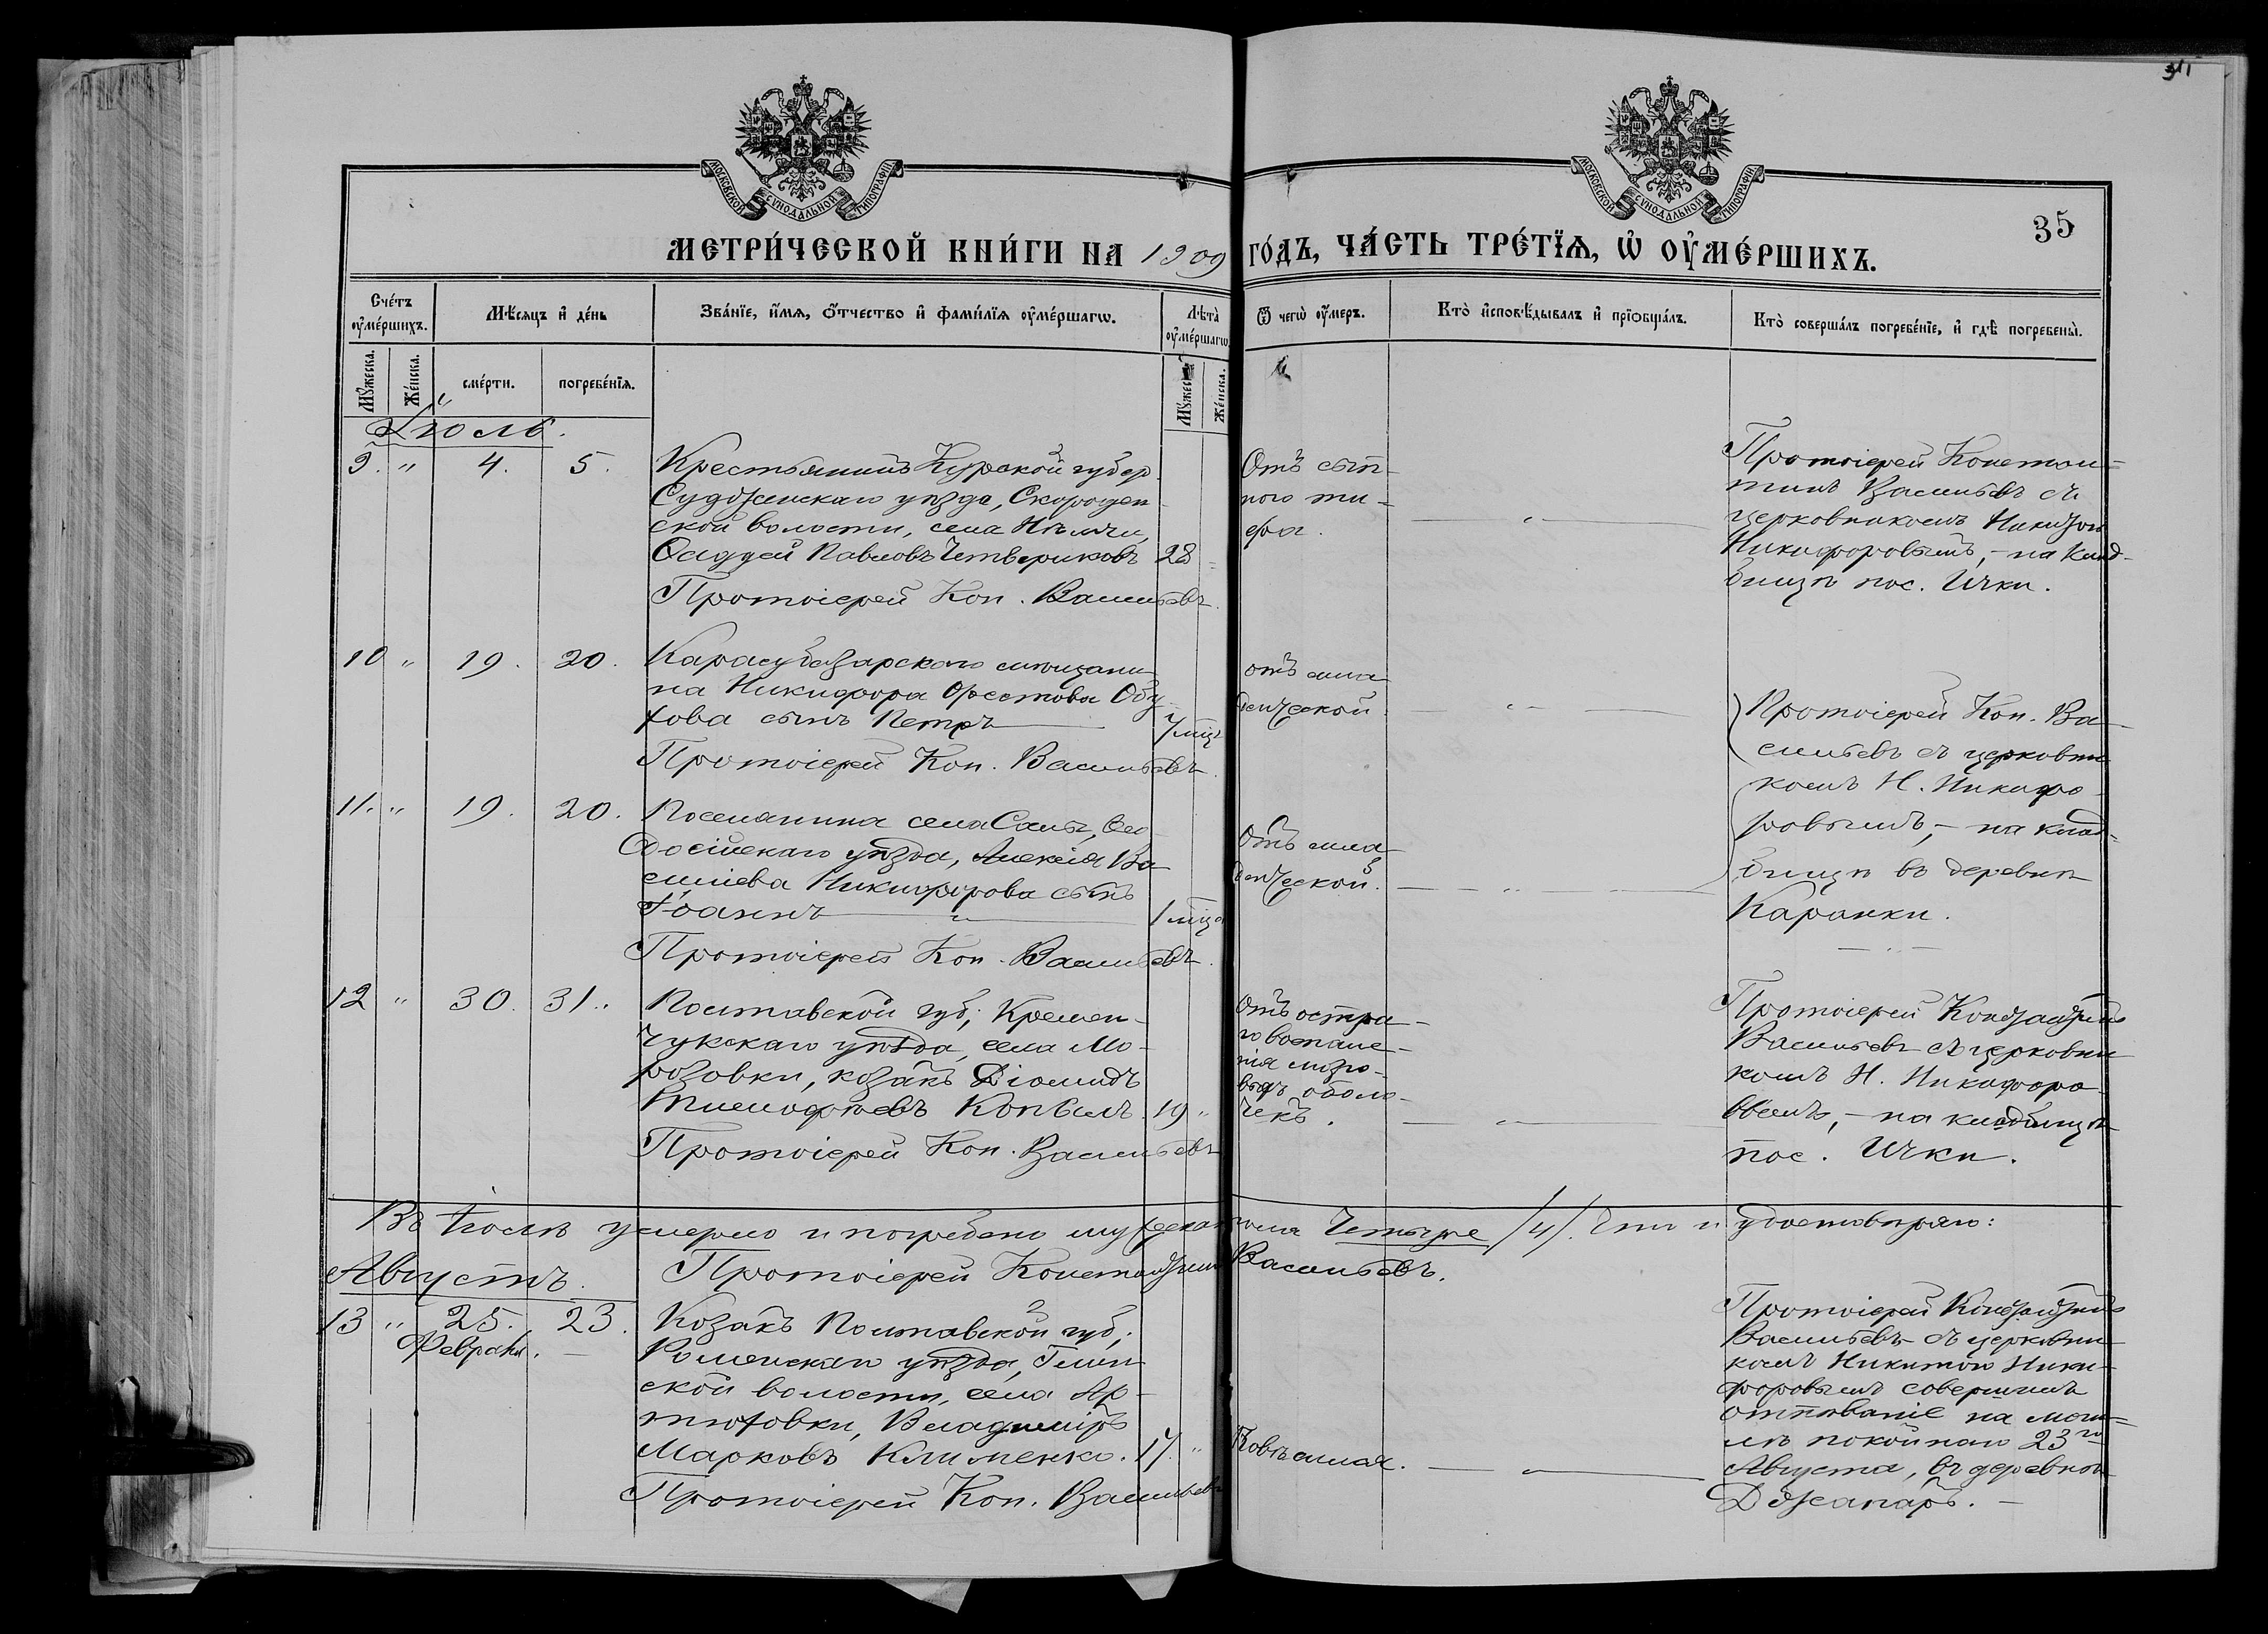 35
МОСКОВСКОЙ СѴНОДАЛЬНОЙ ТИПОГРАФІИ
МОСКОВСКОЙ СѴНОДАЛЬНОЙ ТИПОГРАФІИ
МЕТРИ́ЧЕСКОЙ КНИ́ГИ НА 1909 ГО́ДЪ, ЧА́СТЬ ТРЕ́ТІѦ, Ѡ҆ ОУ҆МЕ́РШИХЪ.
Сче́тъ оу҆ме́ршихъ.
Мѣ́сяцъ и҆ де́нь
Зва́нїе, и҆́мѧ, ѻ҆́тчество и҆ фами́лїѧ оу҆ме́ршагѡ.
Лѣ́та оу҆ме́ршагѡ.
Ѿ чегѡ̀ оу҆́меръ.
Кто̀ и҆сповѣ́дывалъ и҆ прїѡбща́лъ.
Кто̀ соверша́лъ погребе́нїе, и҆ гдѣ̀ погребены̀.
Мꙋ́жеска.
Же́нска.
сме́рти.
погребе́нїѧ.
Мꙋ́жеска.
Же́нска.
Іюль.
9. " 4. 5.
Крестьянинъ Курской губер.
Суджанскаго уѣзда, Скороден-
ской волости, села Нѣмчи,
Ѳаддей Павловъ Четвериковъ 28
Протоіерей Кон. Васильевъ.
Отъ сып-
ного ти-
фа.
Протоіерей Констан-
тинъ Васильевъ съ
церковникомъ Никитою
Никифоровымъ, - на клад-
бищѣ пос. Ички.
10 " 19. 20.
Карасубазарского мѣщани-
на Никифора Орестова Обу-
хова сынъ Петръ 7 мѣц.
Протоіерей Кон. Васильевъ.
отъ мла-
денческой.
Протоіерей Кон. Ва-
сильевъ съ церковни-
комъ Н. Никифо-
ровымъ, - на клад-
бищѣ въ деревнѣ
Каранки.
11. " 19. 20.
Поселянина села Салы, Ѳео-
досійскаго уѣзда, Алексія Ва-
силіева Никифорова сынъ
Іоаннъ 1 мѣца
Протоіерей Кон. Васильевъ.
Отъ мла-
денческой.
12 " 30. 31.
Полтавской губ; Кремен-
чукскаго уѣзда, села Мо-
розовки, козакъ Діомидъ
Тимофѣевъ Копылъ. 19 "
Протоіерей Кон. Васильевъ
Отъ остра-
го воспале-
нія мозго-
выхъ оболо-
чекъ.
Протоіерей Константинъ
Васильевъ съ церковни-
комъ Н. Никифоро-
вымъ, - на кладбищѣ
пос. Ички.
Въ Іюлѣ умерло и погребено мужеска пола Четыре /4/. Что и удостовѣряю:
Протоіерей Константинъ Васильевъ.
Августъ.
13 " 25. 23.
Февраля.
Козакъ Полтавской губ;
Роменскаго уѣзда,
ской волости, села Ар-
тюховки, Владиміръ
Марковъ Клименко. 17. "
Протоіерей Кон. Васильевъ
Протоіерей Константинъ
Васильевъ съ церковни-
комъ Никитою Ники-
форовымъ совершилъ
отпѣваніе на моги-
лѣ покойнаго 23го
Августа, въ деревнѣ
Джапаръ.